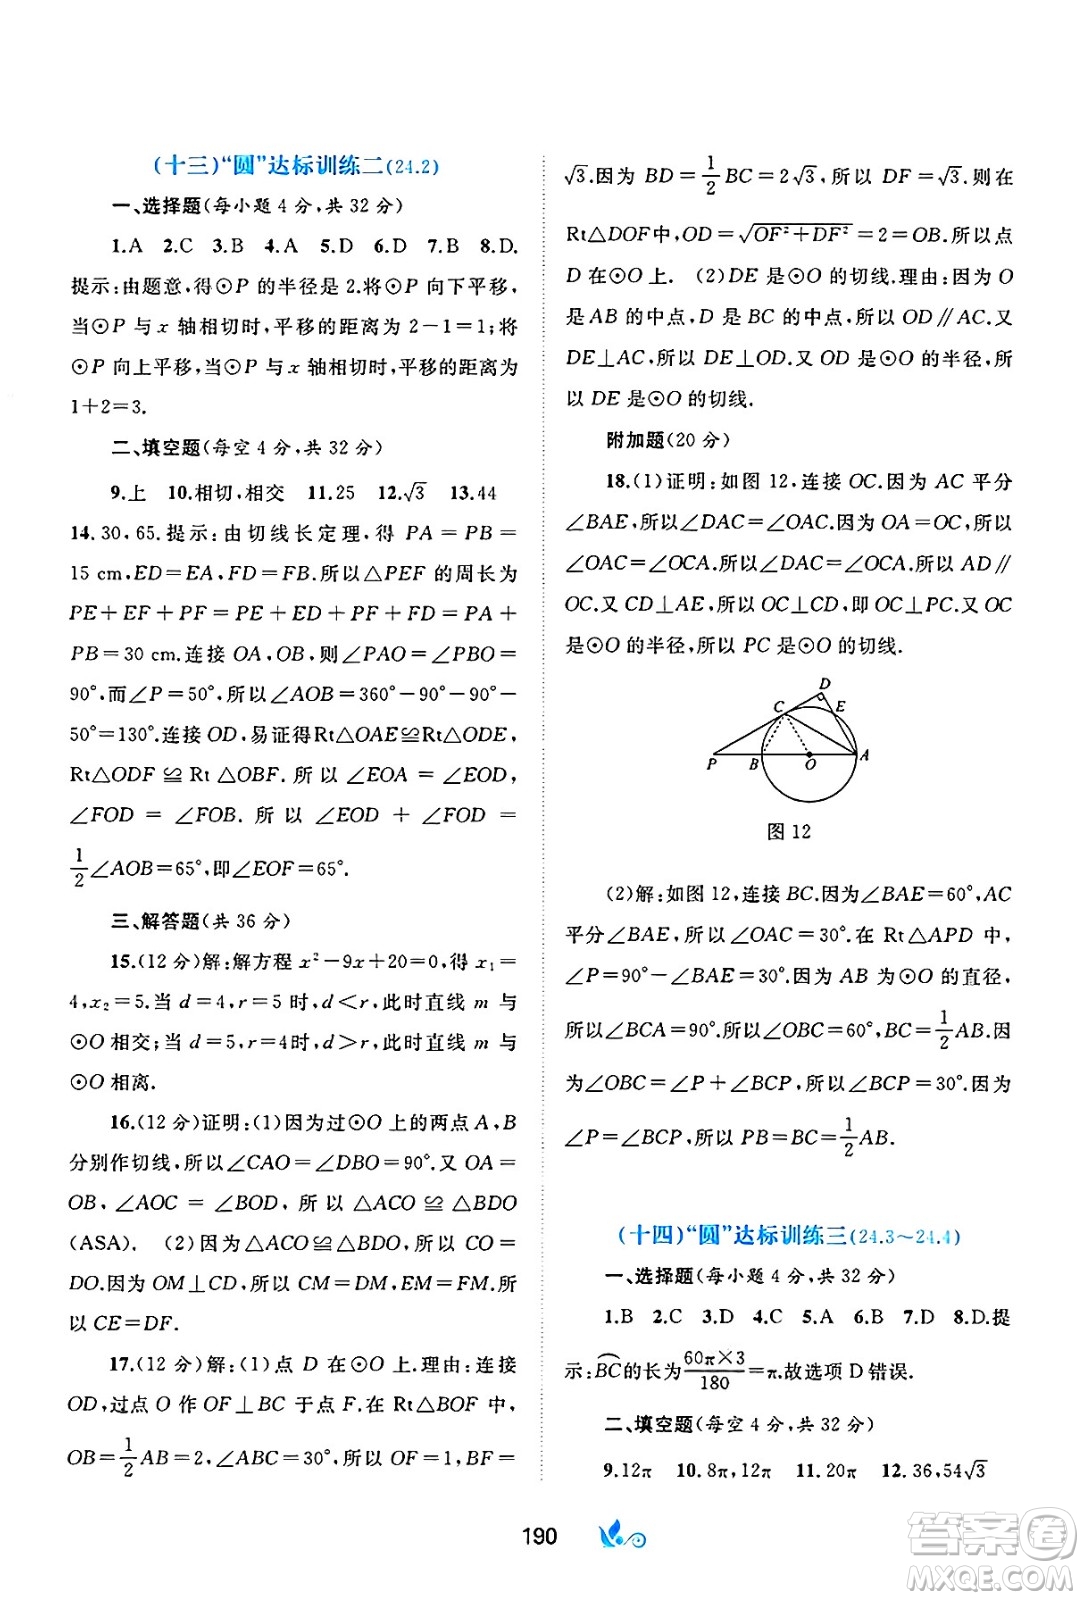 (十三)“圆”达标训练二(24.2)
一、选择题(每小题 4 分,共 32 分)
1.A 2.C 3.B 4.A 5.D 6.D 7.B 8.D.
提示:由题意,得⊙P 的半径是 2.将⊙P 向下平移,
当⊙P 与 x 轴相切时,平移的距离为 2－1＝1;将
⊙P 向上平移,当⊙P 与 x 轴相切时,平移的距离为
1＋2＝3.
二、填空题(每空 4 分,共 32 分)
9.上 10.相切,相交 11.25 12.√3 13.44
14.30,65.提示:由切线长定理,得 PA＝PB＝
15 cm,ED＝EA,FD＝FB.所以△PEF 的周长为
PE＋EF＋PF＝PE＋ED＋PF＋FD＝PA＋
PB＝30 cm.连接 OA,OB,则∠PAO＝∠PBO＝
90°,而∠P＝50°,所以∠AOB＝360°－90°－90°－
50°＝130°.连接 OD,易证得Rt△OAE≌Rt△ODE,
Rt△ODF≌Rt△OBF.所以∠EOA＝∠EOD,
∠FOD＝∠FOB.所以∠EOD＋∠FOD＝
1/2∠AOB＝65°,即∠EOF＝65°.
三、解答题(共 36 分)
15.(12 分)解:解方程 x²－9x＋20＝0,得 x₁＝
4,x₂＝5.当 d＝4,r＝5 时,d＜r,此时直线 m 与
⊙O 相交;当 d＝5,r＝4时,d＞r,此时直线 m 与
⊙O 相离.
16.(12 分)证明:(1)因为过⊙O 上的两点 A,B
分别作切线,所以∠CAO＝∠DBO＝90°.又 OA＝
OB,∠AOC＝∠BOD,所以△ACO≌△BDO
(ASA). (2)因为△ACO≌△BDO,所以 CO＝
DO.因为 OM⊥CD,所以 CM＝DM,EM＝FM.所
以 CE＝DF.
17.(12 分)解:(1)点 D 在⊙O 上.理由:连接
OD,过点 O 作 OF⊥BC 于点 F.在 Rt△BOF 中,
OB＝1/2AB＝2,∠ABC＝30°,所以 OF＝1,BF＝
√3.因为 BD＝1/2BC＝2√3,所以 DF＝√3.则在
Rt△DOF中,OD＝√(OF²＋DF²)＝2＝OB.所以点
D 在⊙O 上. (2)DE 是⊙O 的切线.理由:因为 O
是 AB 的中点,D 是 BC 的中点,所以 OD∥AC.又
DE⊥AC,所以 DE⊥OD.又 OD 是⊙O 的半径,所
以 DE 是⊙O 的切线.
附加题(20 分)
18.(1)证明:如图 12,连接 OC.因为 AC 平分
∠BAE,所以∠DAC＝∠OAC.因为 OA＝OC,所以
∠OAC＝∠OCA.所以∠DAC＝∠OCA.所以 AD∥
OC.又 CD⊥AE,所以 OC⊥CD,即 OC⊥PC.又 OC
是⊙O 的半径,所以 PC 是⊙O 的切线.
D
C E
P B O A
图 12
(2)解:如图 12,连接 BC.因为∠BAE＝60°,AC
平分∠BAE,所以∠OAC＝30°.在 Rt△APD 中,
∠P＝90°－∠BAE＝30°.因为 AB 为⊙O 的直径,
所以∠BCA＝90°.所以∠OBC＝60°,BC＝1/2AB.因
为∠OBC＝∠P＋∠BCP,所以∠BCP＝30°.因为
∠P＝∠BCP,所以 PB＝BC＝1/2AB.
(十四)“圆”达标训练三(24.3～24.4)
一、选择题(每小题 4 分,共 32 分)
1.B 2.C 3.D 4.C 5.A 6.B 7.D 8.D.提
示:⌒BC的长为(60π×3)/180＝π.故选项 D 错误.
二、填空题(每空 4 分,共 32 分)
9.12π 10.8π,12π 11.20π 12.36,54√3
190
答案圈
MXQE.COM